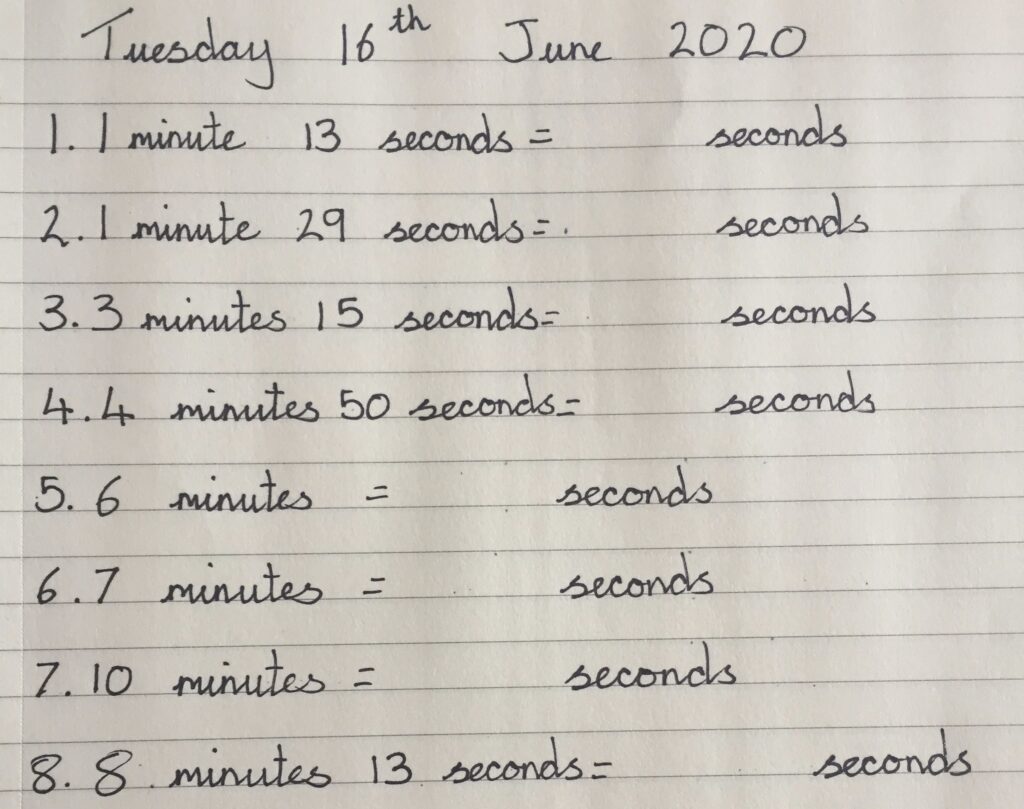 Tuesday 16th June 2020
1. 1 minute 13 seconds = seconds
2. 1 minute 29 seconds = seconds
3. 3 minutes 15 seconds = seconds
4. 4 minutes 50 seconds = seconds
5. 6 minutes = seconds
6. 7 minutes = seconds
7. 10 minutes = seconds
8. 8 minutes 13 seconds = seconds